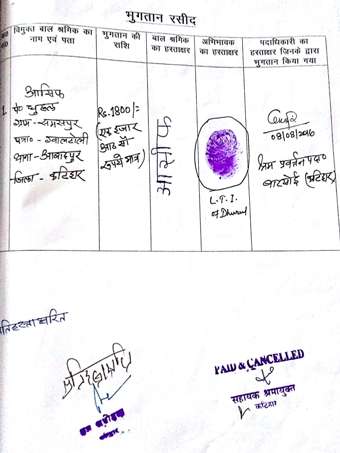 भुगतान रसीद
विमुक्त बाल श्रमिक का नाम एवं पता
भुगतान की राशि
बाल श्रमिक का हस्ताक्षर
अभिभावक का हस्ताक्षर
पदाधिकारी का हस्ताक्षर जिनके द्वारा भुगतान किया गया
1.
आसिफ
ग्राम-
थाना-आबादपुर
जिला-कटिहार
Rs. 1800/-
(एक हजार
आठ सौ
रूपये मात्र)
आसीफ
L.T.I.
of
08/08/2016
श्रम प्रवर्तन पदा०
बारसोई (कटिहार)
PAID & CANCELLED
सहायक श्रमायुक्त
कटिहार